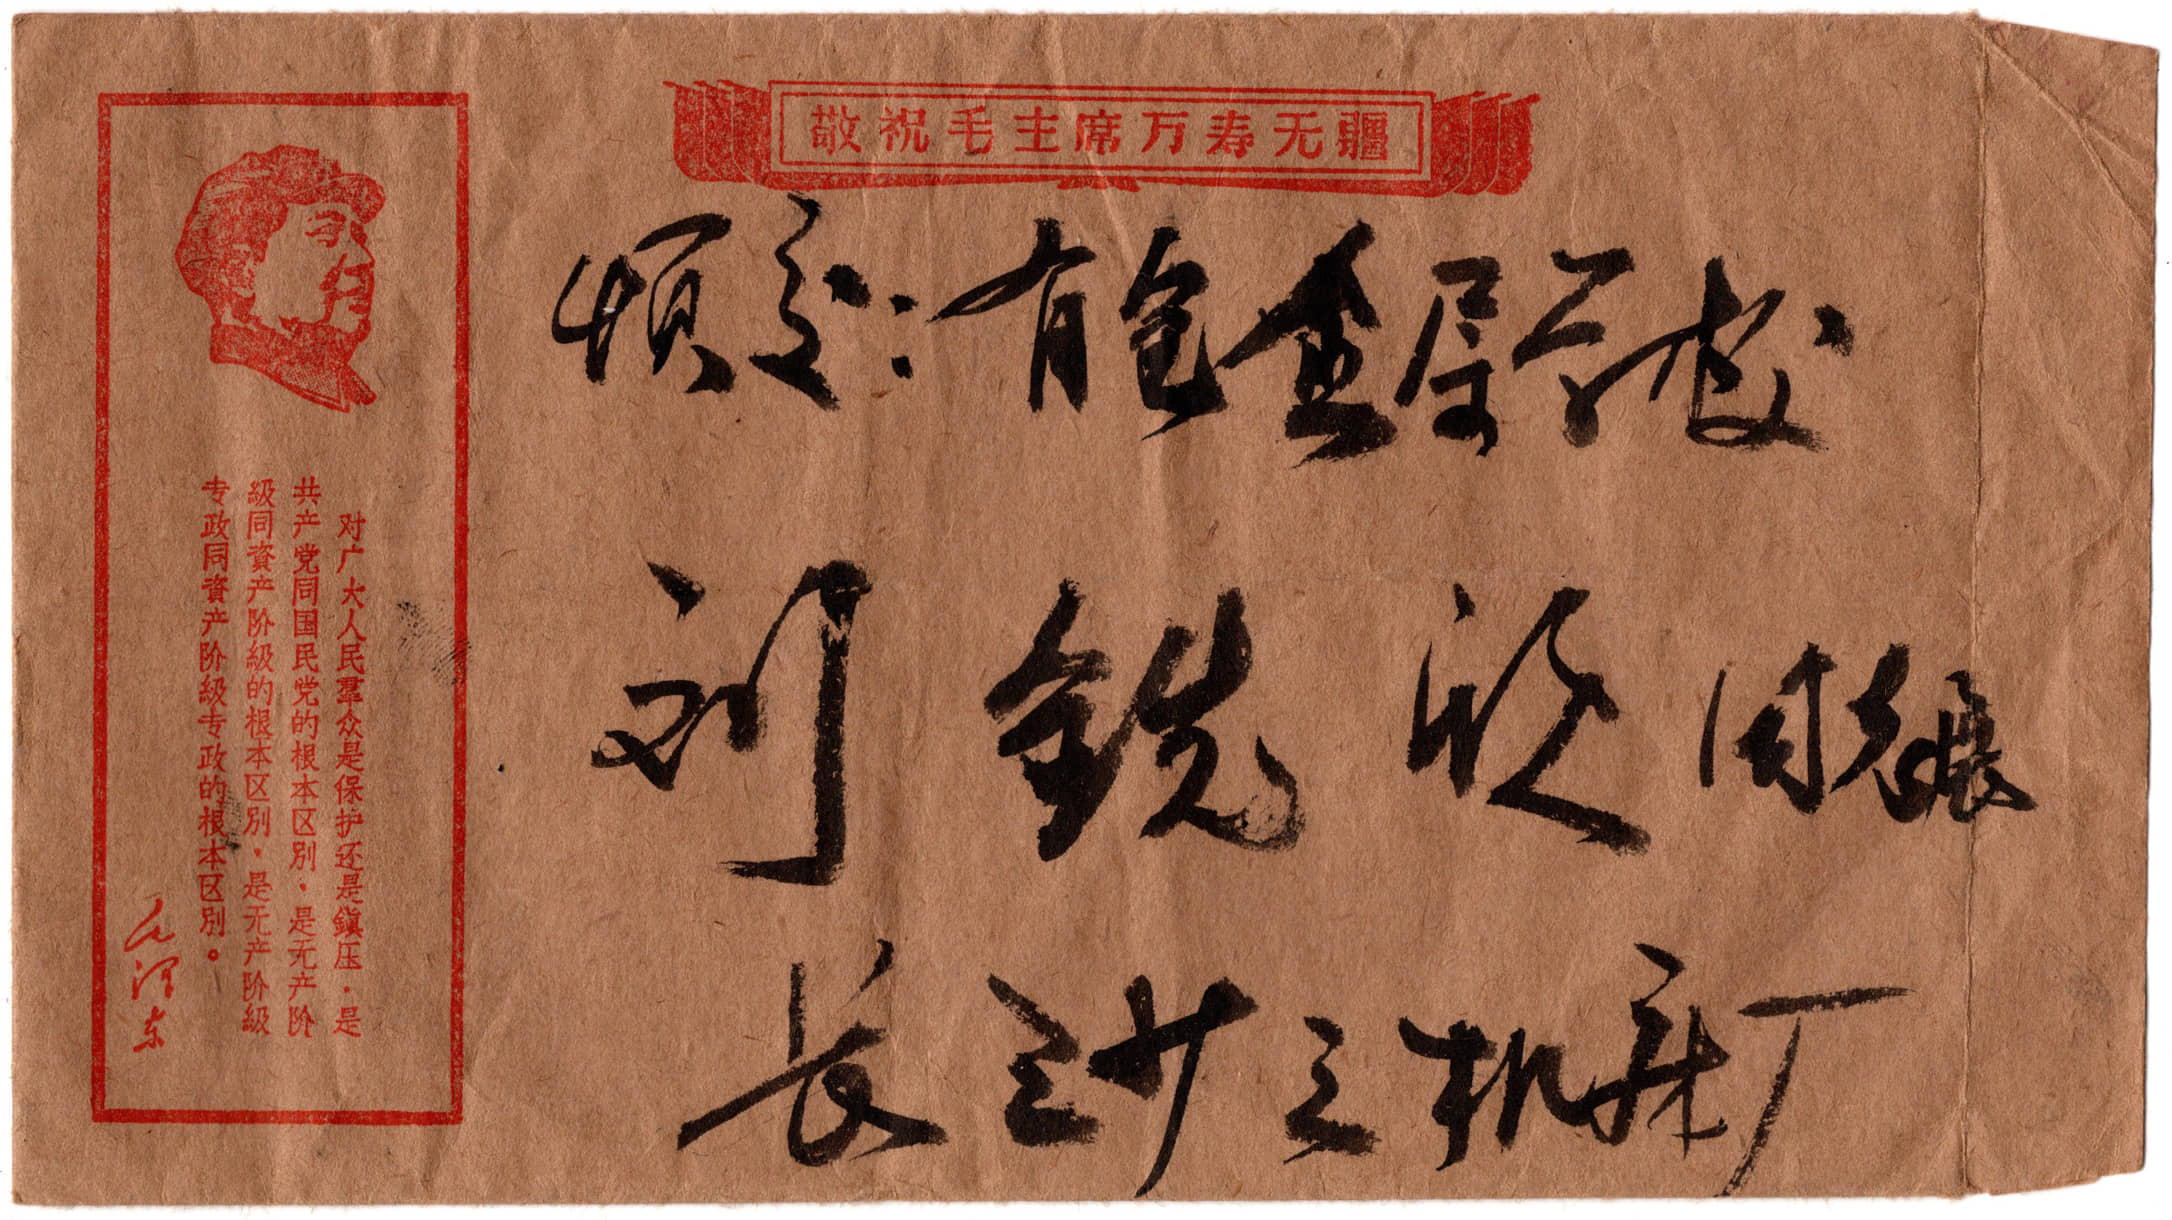 敬祝毛主席万寿无疆
对广大人民羣众是保护还是鎮压，是
共产党同国民党的根本区別，是无产阶
級同資产阶級的根本区別，是无产阶級
专政同資产阶級专政的根本区別。
毛泽东
烦交：有色金属学校
刘銑 同志展
长沙 机床厂